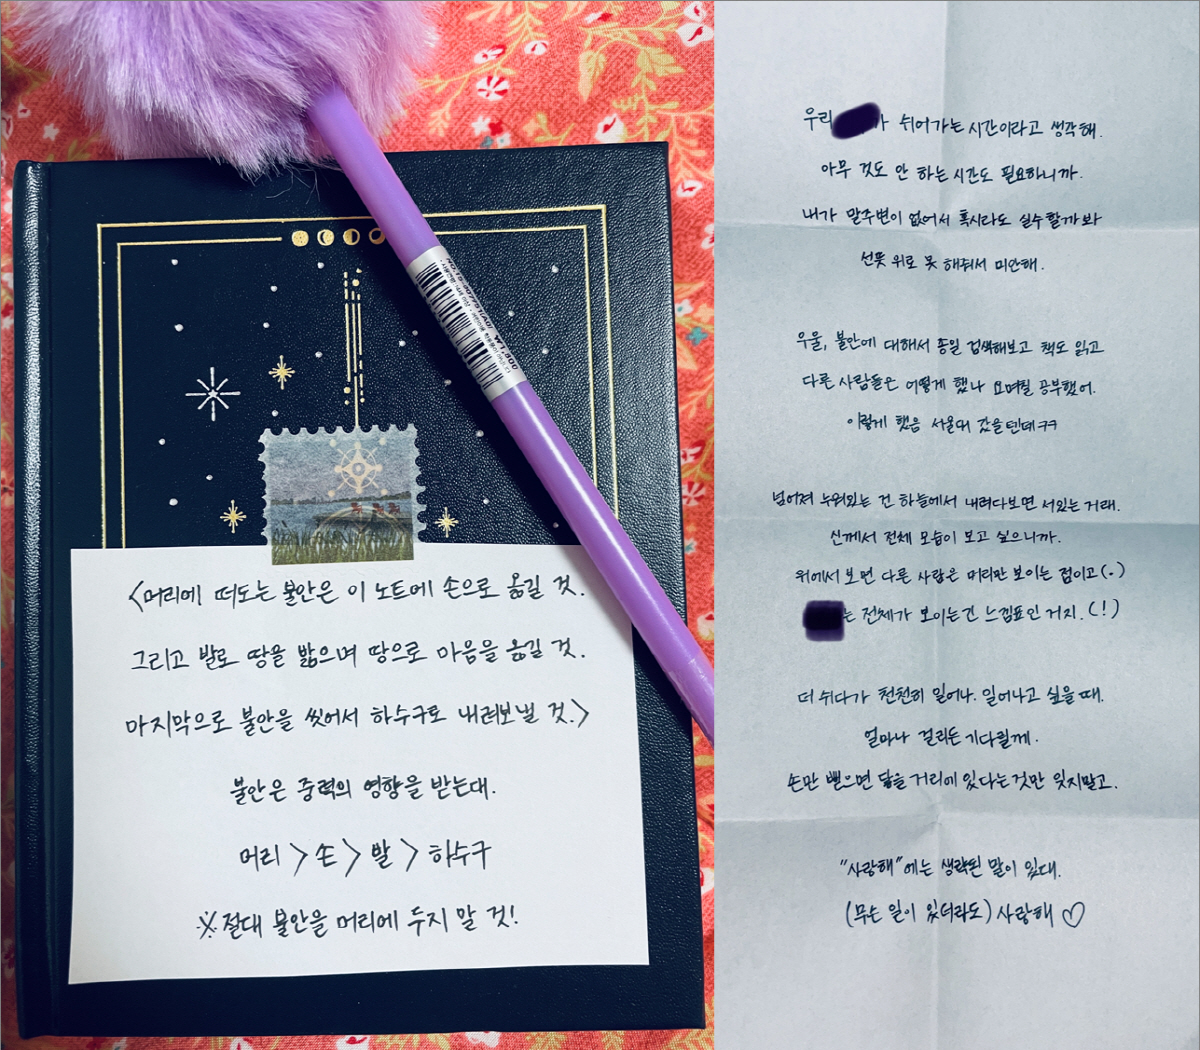 <머리에 떠도는 불안은 이 노트에 손으로 옮길 것.
그리고 발로 땅을 밟으며 땅으로 마음을 옮길 것.
마지막으로 불안을 씻어서 하수구로 내려보낼 것.>
불안은 중력의 영향을 받는대.
머리 > 손 > 발 > 하수구
※ 절대 불안을 머리에 두지 말 것!
우리 가 쉬어가는 시간이라고 생각해.
아무 것도 안 하는 시간도 필요하니까.
내가 말주변이 없어서 혹시라도 실수할까봐
선뜻 위로 못 해줘서 미안해.
우울, 불안에 대해서 종일 검색해보고 책도 읽고
다른 사람들은 어떻게 했나 요며칠 공부했어.
이렇게 했음 서울대 갔을텐데 ㅋㅋ
넘어져 누워있는 건 하늘에서 내려다보면 서있는 거래.
신께서 전체 모습이 보고 싶으니까.
위에서 보면 다른 사람은 머리만 보이는 점이고(.)
는 전체가 보이는건 느낌표인 거지.(!)
더 쉬다가 천천히 일어나. 일어나고 싶을 때.
얼마나 걸리든 기다릴게.
손만 뻗으면 닿을 거리에 있다는것만 잊지말고.
"사랑해"에는 생략된 말이 있대.
(무슨 일이 있더라도) 사랑해 ♡